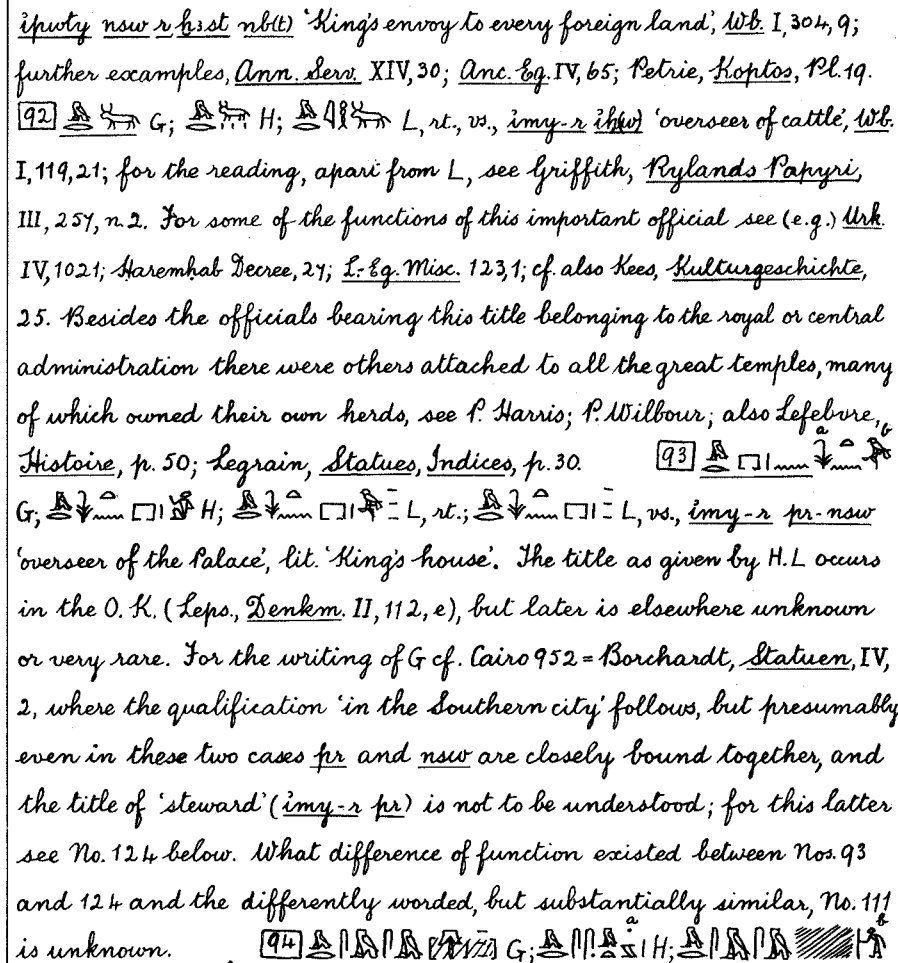 ἰpwty nsw r ḫꜣst nb(t) 'King's envoy to every foreign land', Wb. I, 304, 9;
further examples, Ann. Serv. XIV, 30; Anc. Eg. IV, 65; Petrie, Koptos, Pl. 19.
92 G; H; L, rt., vs., ἰmy-r ἰḥ(w) 'overseer of cattle', Wb.
I, 119, 21; for the reading, apart from L, see Griffith, Rylands Papyri,
III, 257, n. 2. For some of the functions of this important official see (e.g.) Urk.
IV, 1021; Haremhab Decree, 27; L.-Eg. Misc. 123, 1; cf. also Kees, Kulturgeschichte,
25. Besides the officials bearing this title belonging to the royal or central
administration there were others attached to all the great temples, many
of which owned their own herds, see P. Harris; P. Wilbour; also Lefebvre,
Histoire, p. 50; Legrain, Statues, Indices, p. 30. 93 a b
G; H; L, rt.; L, vs., ἰmy-r pr-nsw
'overseer of the Palace', lit. 'King's house'. The title as given by H.L occurs
in the O.K. (Leps., Denkm. II, 112, e), but later is elsewhere unknown
or very rare. For the writing of G cf. Cairo 952 = Borchardt, Statuen, IV,
2, where the qualification 'in the Southern city' follows, but presumably
even in these two cases pr and nsw are closely bound together, and
the title of 'steward' (ἰmy-r pr) is not to be understood; for this latter
see No. 124 below. What difference of function existed between Nos. 93
and 124 and the differently worded, but substantially similar, No. 111
is unknown. 94 G; a H; b